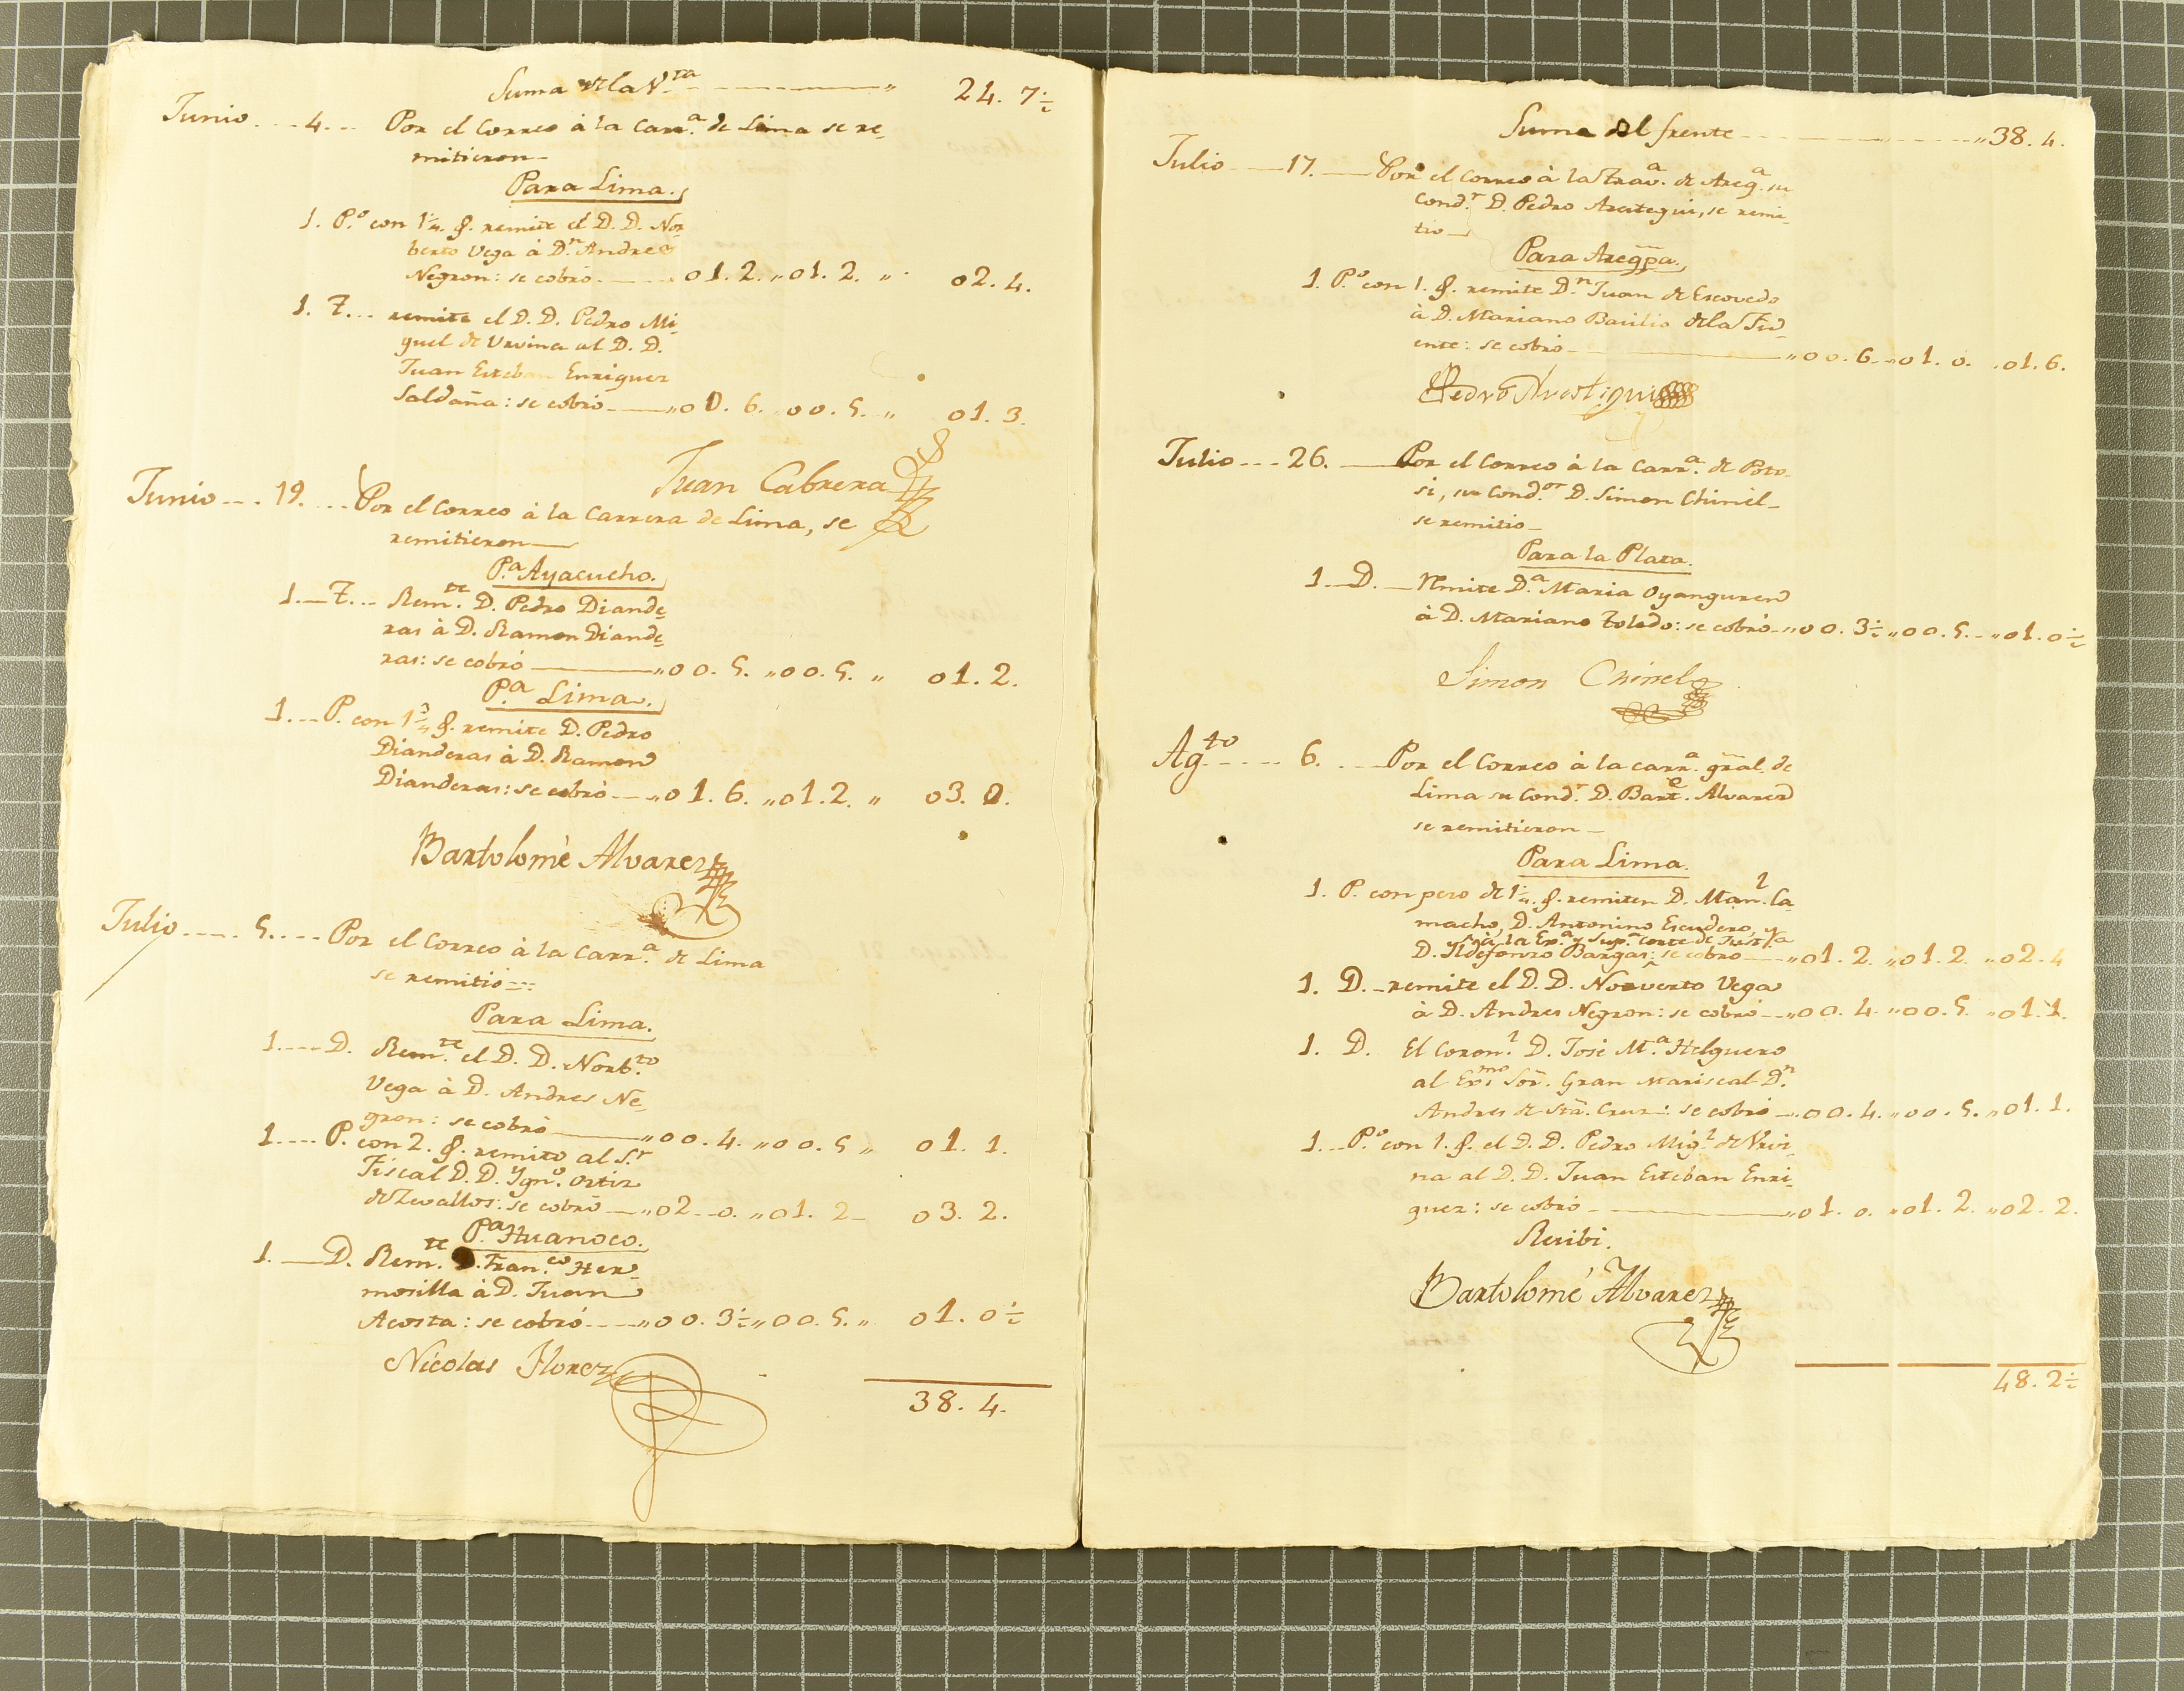 Suma de la V.ta - - - - - " 24. 7½
Junio - - - 4. - - Por el Correo à la Carr.a de Lima se re-
mitieron -
Para Lima.
1. P.o con 1¼. g. remite el D. D. Nor
berto Vega à D.n Andres
Negron: se cobró - - - - 01. 2. „ 01. 2. „ 02. 4.
1. T... remite el D. D. Pedro Mi-
guel de Urvina al D. D.
Juan Esteban Enriquez
Saldaña: se cobró - - „ 00. 6. „ 00. 5. „ 01. 3.
Juan Cabrera
Junio - - - 19. - - - Por el Correo à la Carrera de Lima, se
remitieron -
P.a Ayacucho.
1. - T... Rem.te D. Pedro Diande-
ras à D. Ramon Diande-
ras: se cobró - - - „ 00. 5. „ 00. 5. „ 01. 2.
P.a Lima.
1... P. con 1¾ g. remite D. Pedro
Dianderas à D. Ramon
Dianderas: se cobró - - „ 01. 6. „ 01. 2. „ 03. 0.
Bartolomè Alvarez
Julio - - - - 5. - - - Por el Correo à la Carr.a de Lima
se remitió - - :
Para Lima.
1. - - - D. Rem.te el D. D. Norb.to
Vega à D. Andres Ne-
gron: se cobró - - - „ 00. 4. „ 00. 5 „ 01. 1.
1. - - - P. con 2. g. remito al S.r
Fiscal D. D. Ygn.o Ortiz
de Zevallos: se cobró - „ 02. - 0. „ 01. 2 - 03. 2.
P.a Huanoco.
1. - D. Rem.te D. Fran.co Her-
mosilla à D. Juan
Acosta: se cobró - - - „ 00. 3½ „ 00. 5. „ 01. 0½
Nicolas Florez
38. 4.
Suma del frente - - - - - - „ 38. 4.
Julio - - - 17. - - Por el Correo à la Trav.a de Areq.a su
Cond.r D. Pedro Arestegui, se remi-
tio -
Para Areqpa.
1. P.o con 1. g. remite D.n Juan de Escovedo
à D. Mariano Basilio de la Fu-
ente: se cobró - - - - „ 00. 6. „ 01. 0. „ 01. 6.
Pedro Arestigui
Julio - - - 26. - - Por el Correo à la Carr.a de Poto-
si, su Cond.or D. Simon Chinel -
se remitio -
Para la Plata.
1. - D. - Remite D.a Maria Oyanguren
à D. Mariano Toledo: se cobró - „ 00. 3½ „ 00. 5. - „ 01. 0½
Simon Chinel
Ag.to - - - - 6. - - - Por el Correo à la carr.a gral. de
Lima su Cond.r D. Bart.e Alvarez
se remitieron -
Para Lima.
1. P. con peso de 1¼. g. remiten D. Man.l Ca-
macho, D. Antonino Escudero, y
à la Ex.a y Sup.a Corte de Just.a
D. Yldefonzo Bargas: se cobró - - „ 01. 2. „ 01. 2 „ 02. 4
1. D. - remite el D. D. Norverto Vega
à D. Andres Negron: se cobró - - „ 00. 4. „ 00. 5. „ 01. 1.
1. D. El Coron.l D. José M.a Helguero
al Ex.mo Sor. Gran Mariscal D.n
Andres de Sta. Cruz: se cobró - „ 00. 4. „ 00. 5. „ 01. 1.
1. - P.o con 1. g. el D. D. Pedro Mig.l de Urvi-
na al D. D. Juan Esteban Enri-
quez: se cobró - - - - „ 01. 0. „ 01. 2. „ 02. 2.
Recibi.
Bartolomé Alvarez
48. 2½